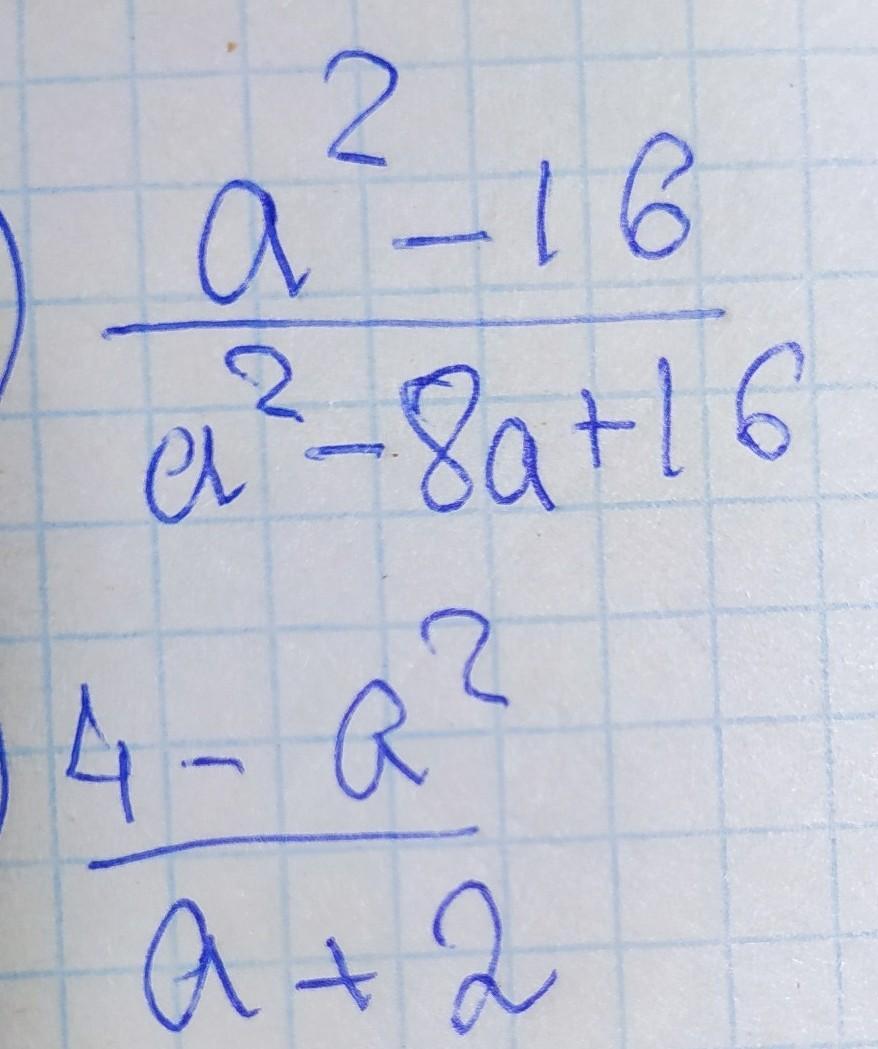 ) a² - 16
a² - 8a + 16
) 4 - a²
a + 2